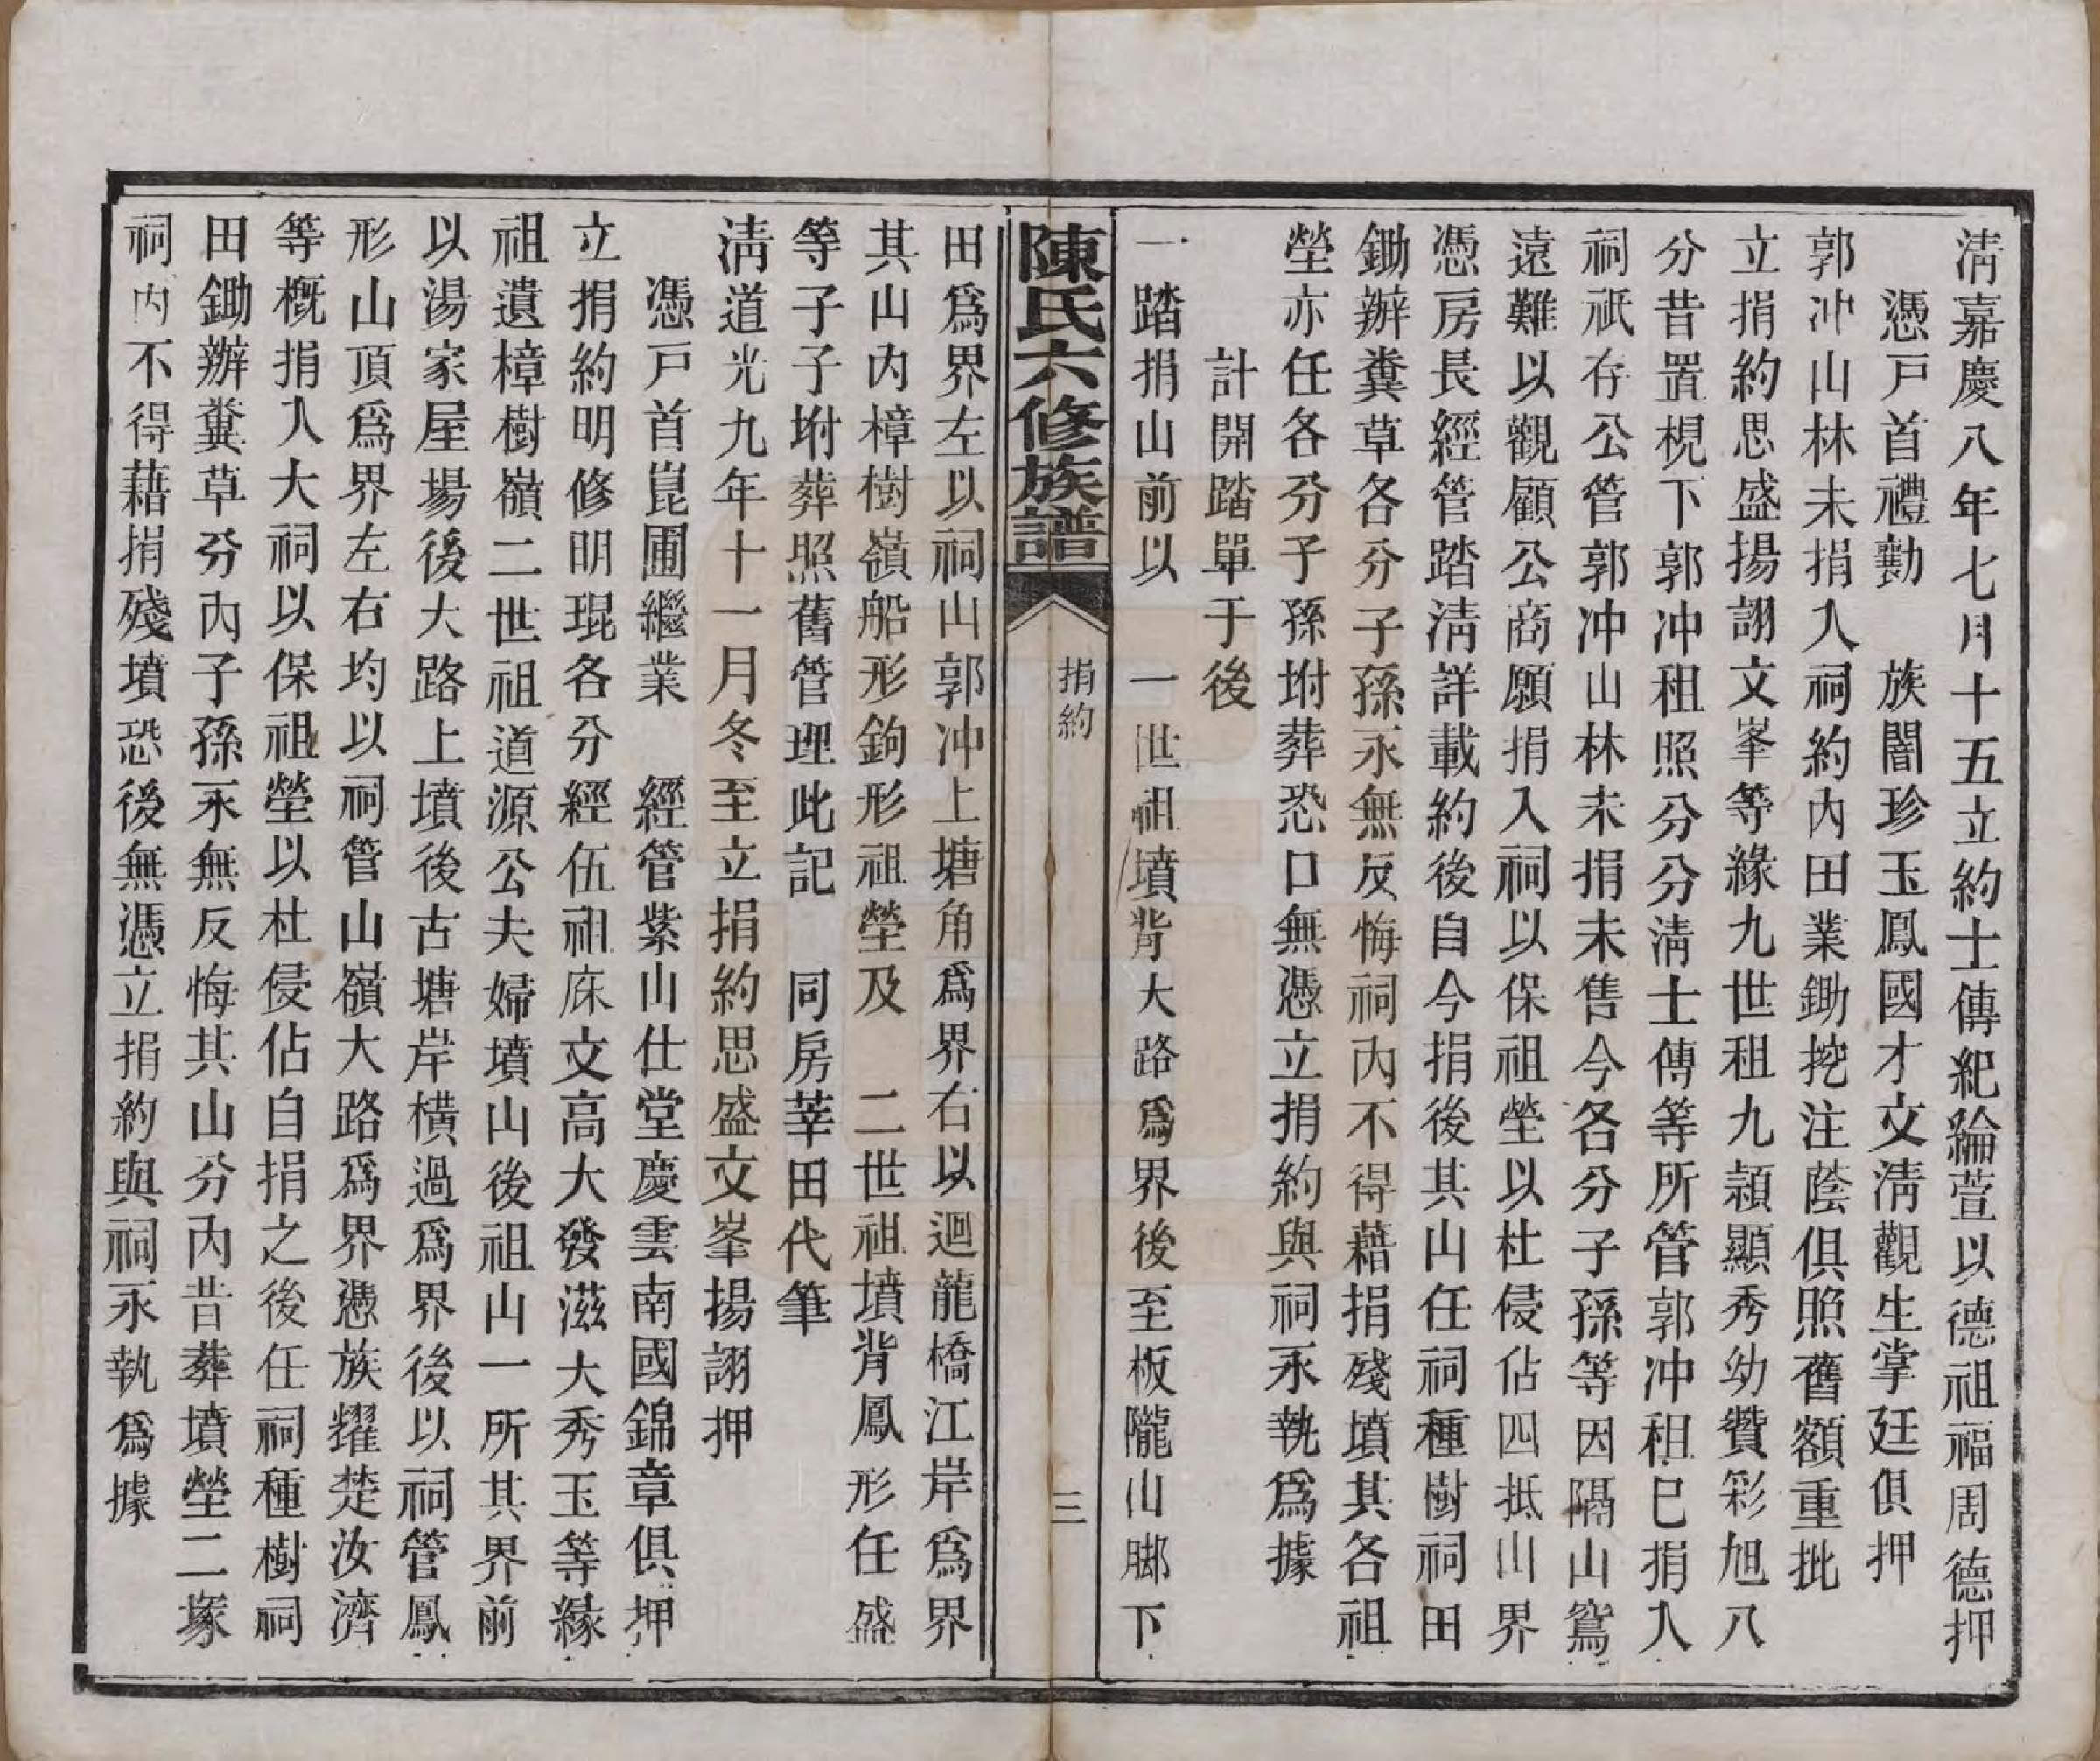 淸嘉慶八年七月十五立約士傳紀綸萱以德祖福周德押
憑戸首禮勷　族閽珍玉鳳國才文淸觀生掌廷俱押
郭冲山林未捐入祠約內田業鋤挖注蔭俱照舊額重批
立捐約思盛揚詡文峯等緣九世祖九穎顯秀幼贊彩旭八
分昔置梘下郭冲祖照分分淸士傳等所管郭冲祖巳捐入
祠祇存公管郭冲山林未捐未售今各分子孫等因隔山窵
遠難以觀顧公商願捐入祠以保祖塋以杜侵佔四抵山界
憑房長經管踏淸詳載約後自今捐後其山任祠種樹祠田
鋤辦糞草各分子孫永無反悔祠內不得藉捐殘墳其各祖
塋亦任各分子孫坿葬恐口無憑立捐約與祠永執爲據
計開踏單于後
一踏捐山前以　一世祖墳背大路爲界後至板隴山脚下
陳氏六修族譜
捐約
三
田爲界左以祠山郭冲上塘角爲界右以迴龍橋江岸爲界
其山內樟樹嶺船形鉤形祖塋及　二世祖墳背鳳形任盛
等子子坿葬照舊管理此記　同房莘田代筆
淸道光九年十一月冬至立捐約思盛文峯揚詡押
憑戸首崑圃繼業　經管紫山仕堂慶雲南國錦章俱押
立捐約明修明琨各分經伍祖庥文高大發滋大秀玉等緣
祖遺樟樹嶺二世祖道源公夫婦墳山後祖山一所其界前
以湯家屋場後大路上墳後古塘岸橫過爲界後以祠管鳳
形山頂爲界左右均以祠管山嶺大路爲界憑族耀楚汝濟
等概捐入大祠以保祖塋以杜侵佔自捐之後任祠種樹祠
田鋤辦糞草分內子孫永無反悔其山分內昔葬墳塋二塚
祠內不得藉捐殘墳恐後無憑立捐約與祠永執爲據